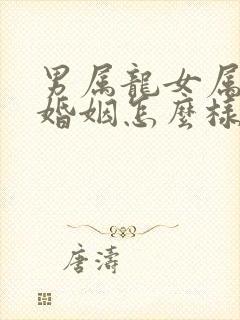 男属龍女属
婚姻怎麼樣
唐濤